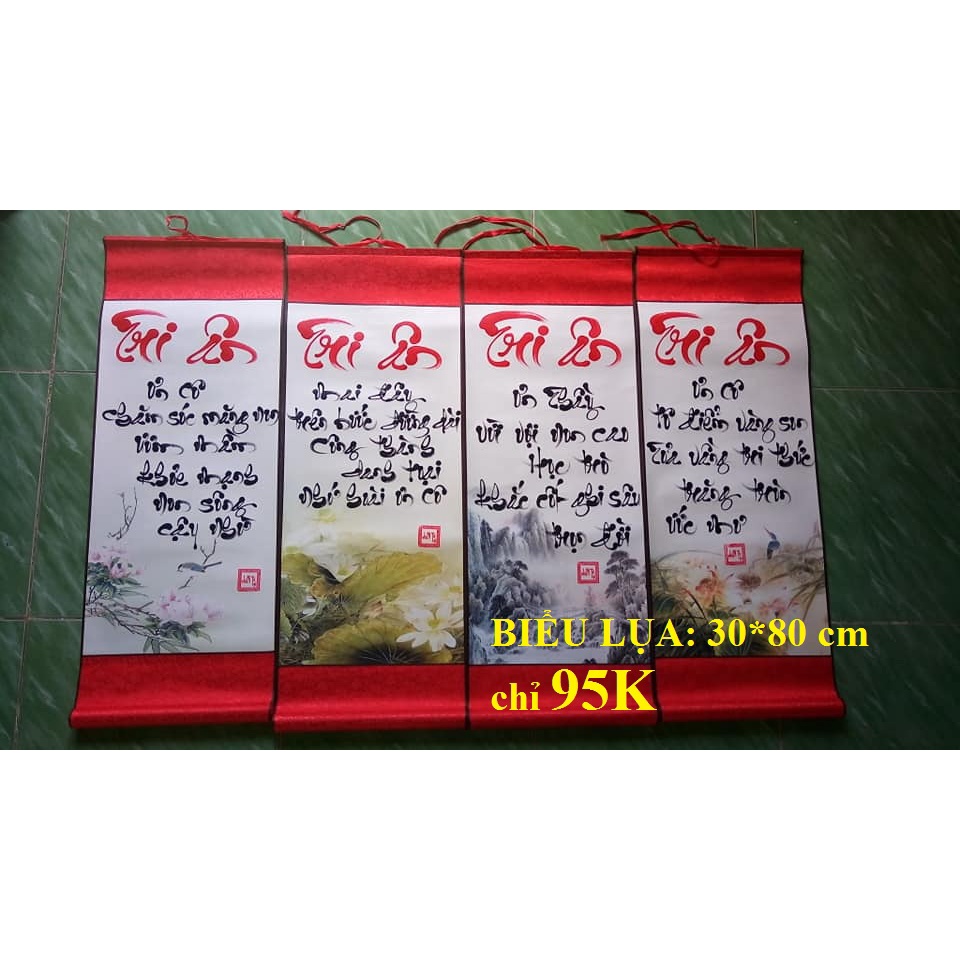 Tri Ân
Ơn Cô
Chăm sóc măng non
Ươm mầm
Khoẻ mạnh
Non sông
cậy nhờ
Tri Ân
Mai đây
trên bước đường dài
Công thành
danh toại
Nhớ hoài ơn cô
Tri Ân
Ơn Thầy
vời vợi non cao
Học trò
khắc cốt ghi sâu
trọn đời
Tri Ân
Ơn Cô
tô điểm vàng son
vầng tri thức
trăng tròn
ước mơ
BIỂU LỤA: 30*80 cm
chỉ 95K